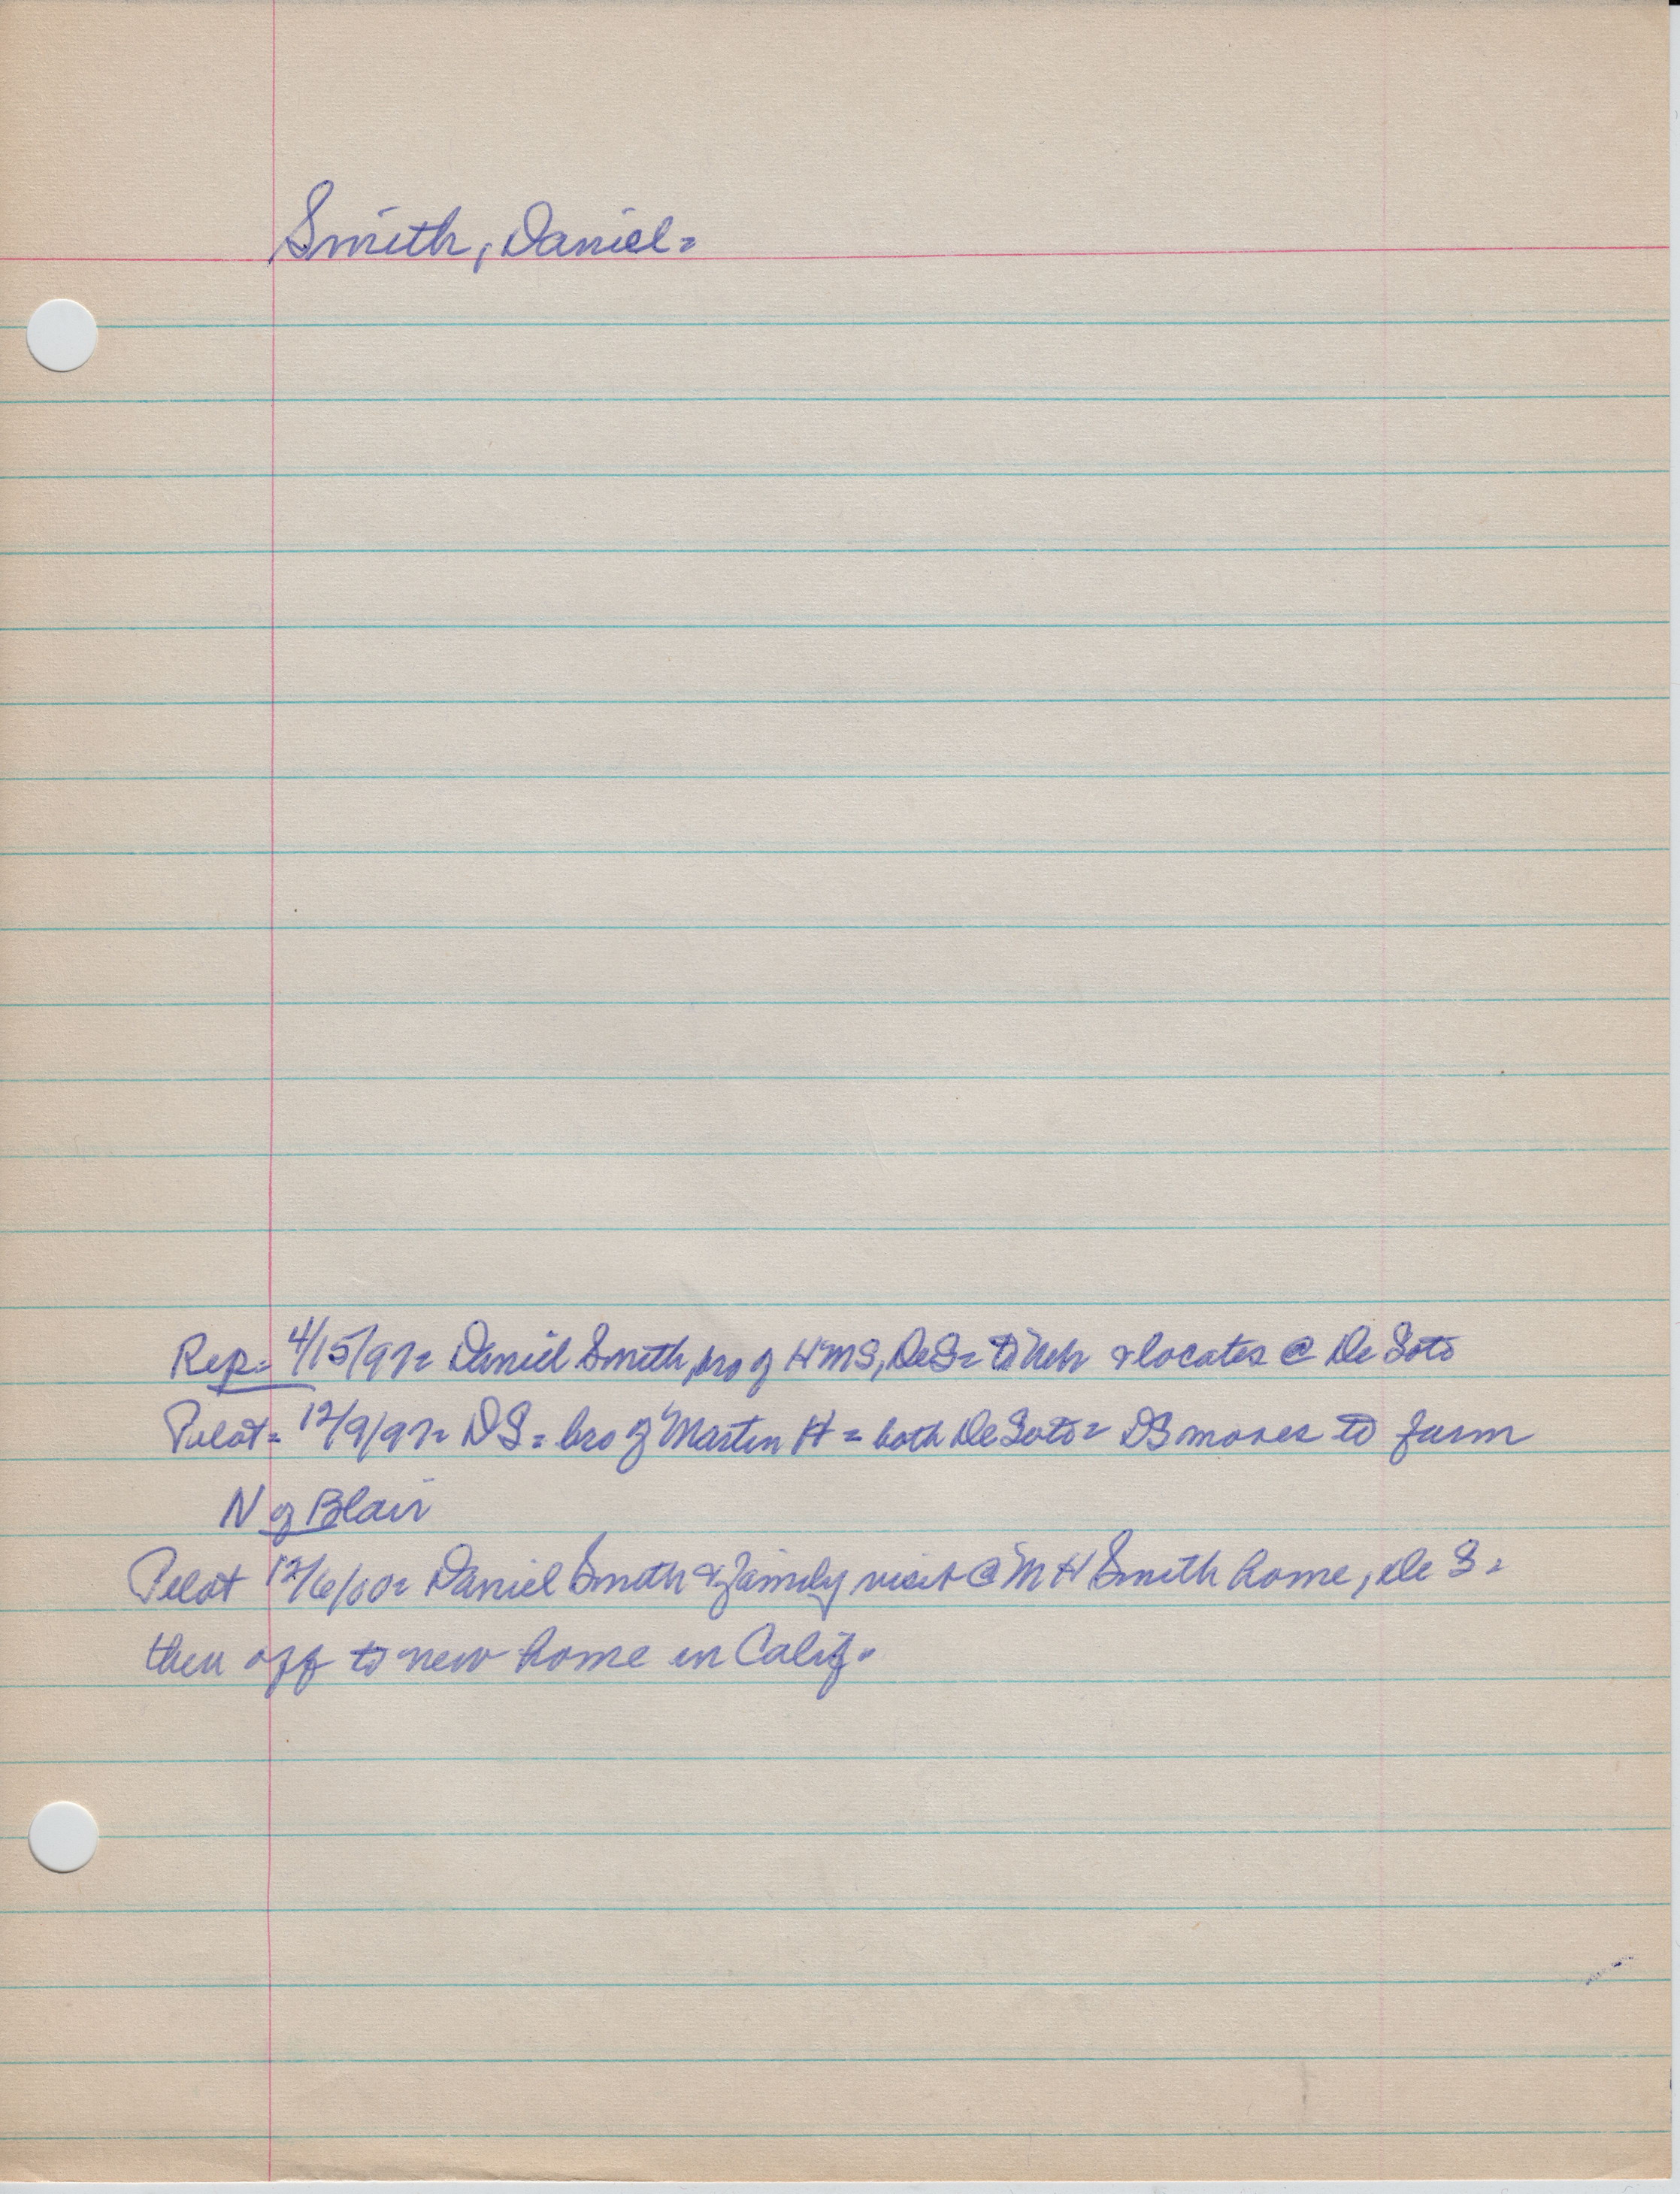 Smith, Daniel=
Rep= 4/15/97= Daniel Smith, bro of HMS, DeS= to Neb & locates @ De Soto
Pilot= 12/9/97= DS= bro of Martin H= both De Soto= DS moves to farm
N of Blair
Pilot 12/6/00= Daniel Smith & family visit @ M H Smith home, De S=
then off to new home in Calif.